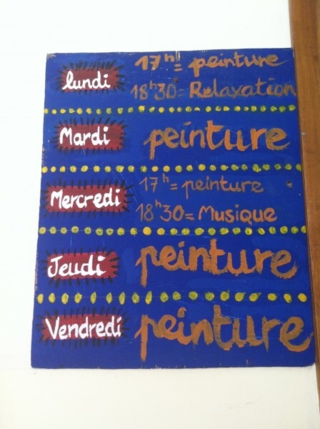 lundi 17h= peinture
18h30= Relaxation
Mardi peinture
Mercredi 17h= peinture
18h30= Musique
Jeudi peinture
Vendredi peinture